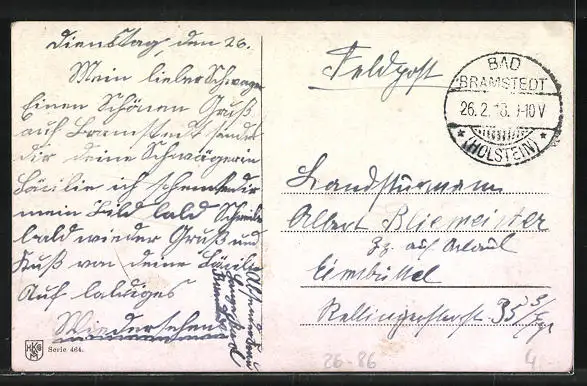 Dienstag, den 26.
Mein lieber Schwager
Einen Schönen Gruß
auf Bramstedt sendet
dir deine Schwägerin
Cäcilie ich schenke dir
mein Bild bald Schreibe
bald wieder Gruß und
Kuß von deine Cäcilie
Auf baldiges
Wiedersehen
Serie 464.
Feldpost
BAD
BRAMSTEDT
26.2.18. 9-10 V
(HOLSTEIN)
Landsturmann
Albert Bliemeister
Zz. auf Urlaub
Eimsbüttel
Rellingerstraße 35
26-86
4.-